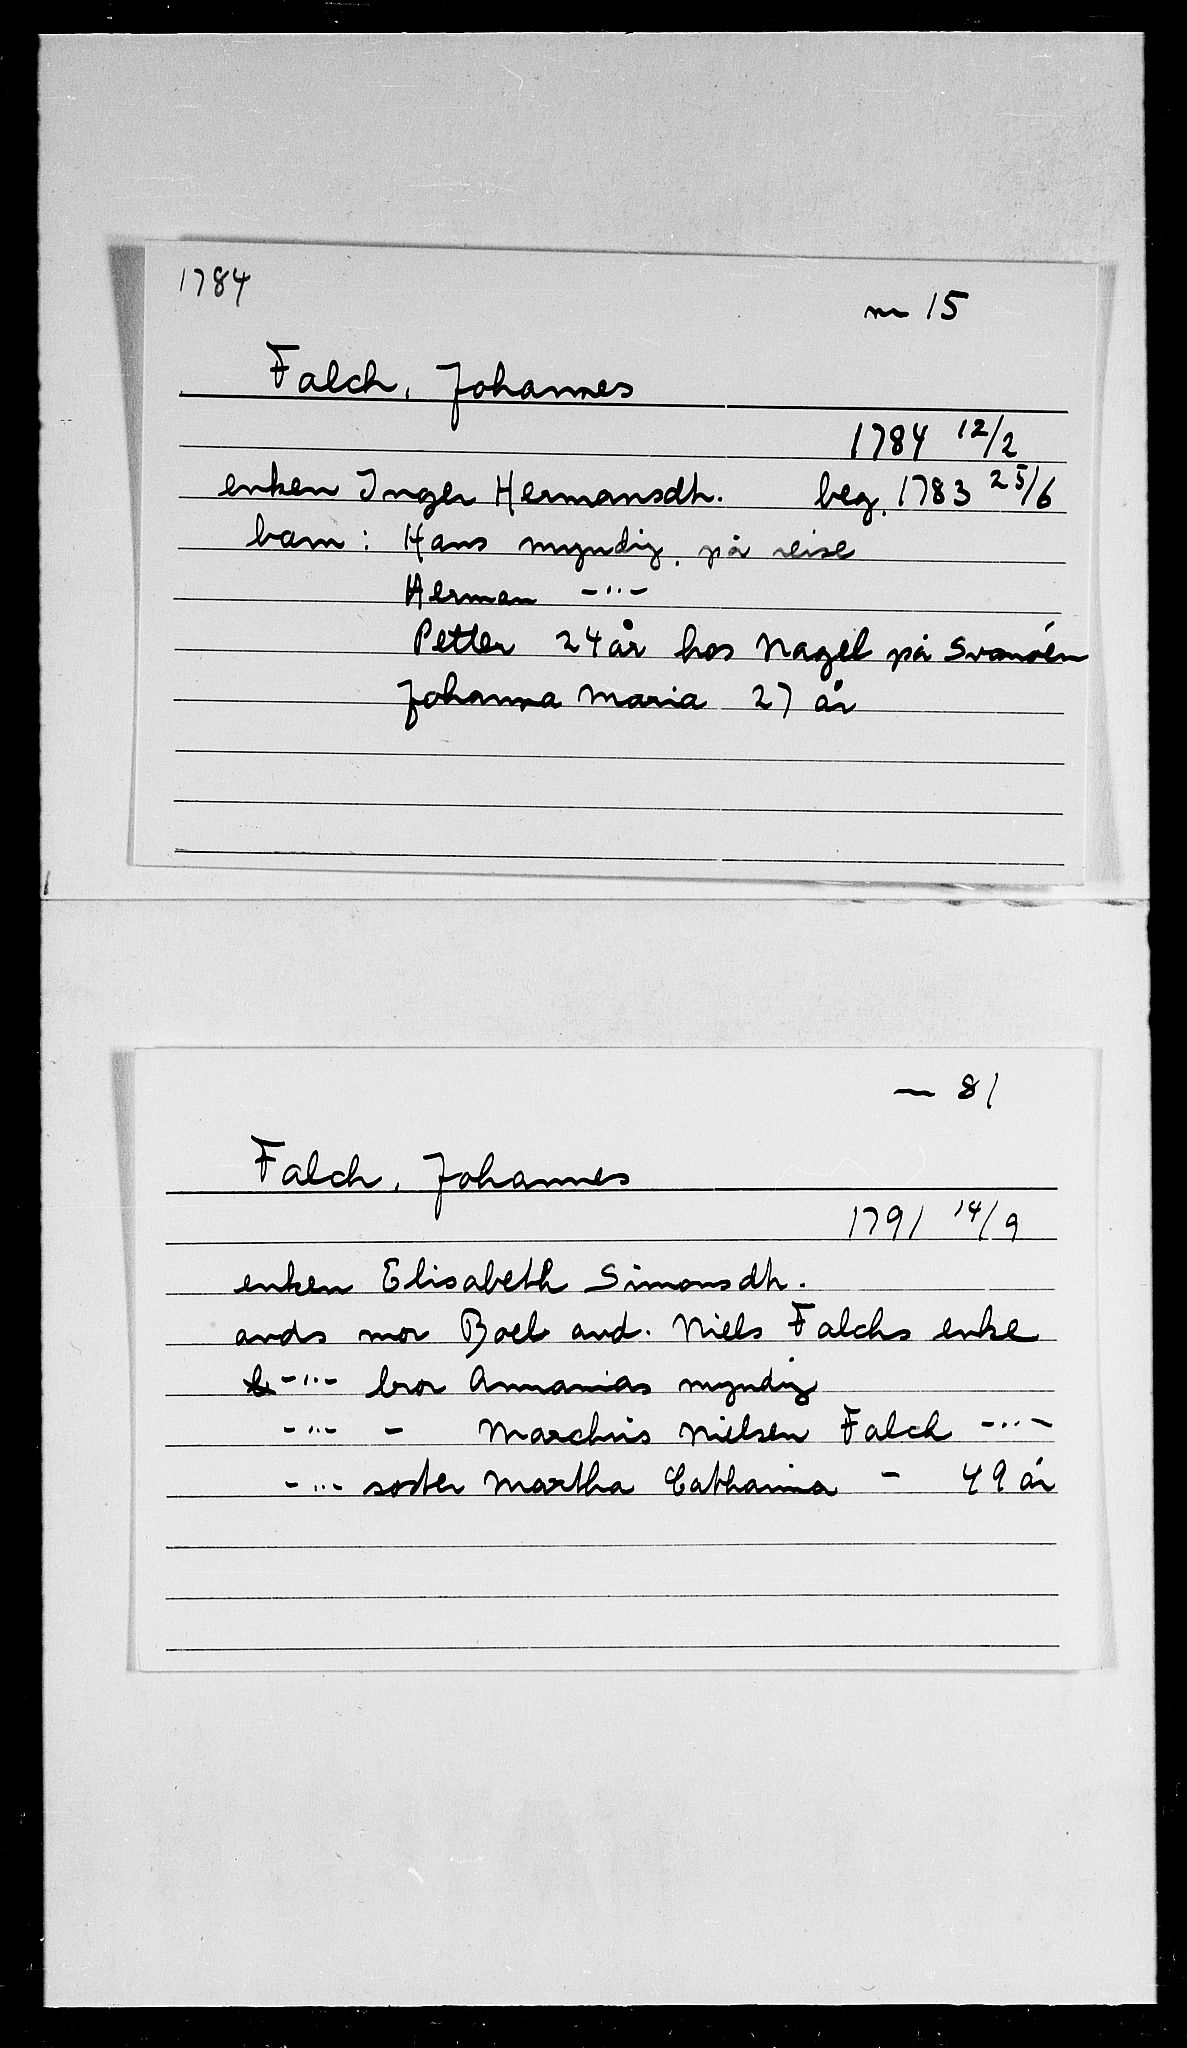 1784
m 15
Falch, Johannes
1784 12/2
enken Inger Hermansdtr. beg. 1783 25/6
barn: Hans myndig, på reise
Herman -"-
Petter 24 år hos Nagel på Svanøen
Johanna Maria 27 år
— 81
Falch, Johannes
1791 14/9
enken Elisabeth Simonsdtr.
avds mor Boel avd. Niels Falchs enke
-"- bror Annanias myndig
-"- - Marchus Nielsen Falch -"-
-"- søster Martha Catharina - 49 år